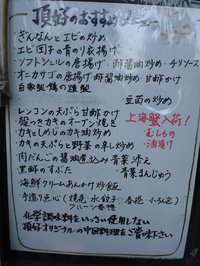 頂好のおすすめメニュー
ぎんなんとエビの炒め
エビ団子の青のり衣揚げ
ソフトシェルの唐揚げ 醤油炒め・チリソース
オニカサゴの唐揚げ 甘酢かけ
自家製鴨の燻製
豆苗の炒め
レンコンの天ぷら 甘酢かけ
殻つきカキのオーブン焼き
カキとしめじのカキ油炒め
カキの天ぷらと野菜の辛し炒め
肉だんごの醤油煮込み 青菜添え
黒酢のすぶた
海鮮クリームあんかけ炒飯
手造り点心
上海蟹入荷!
むしもの
酒漬け
化学調味料をいっさい使用しない
頂好オリジナルの中国料理をご賞味下さい